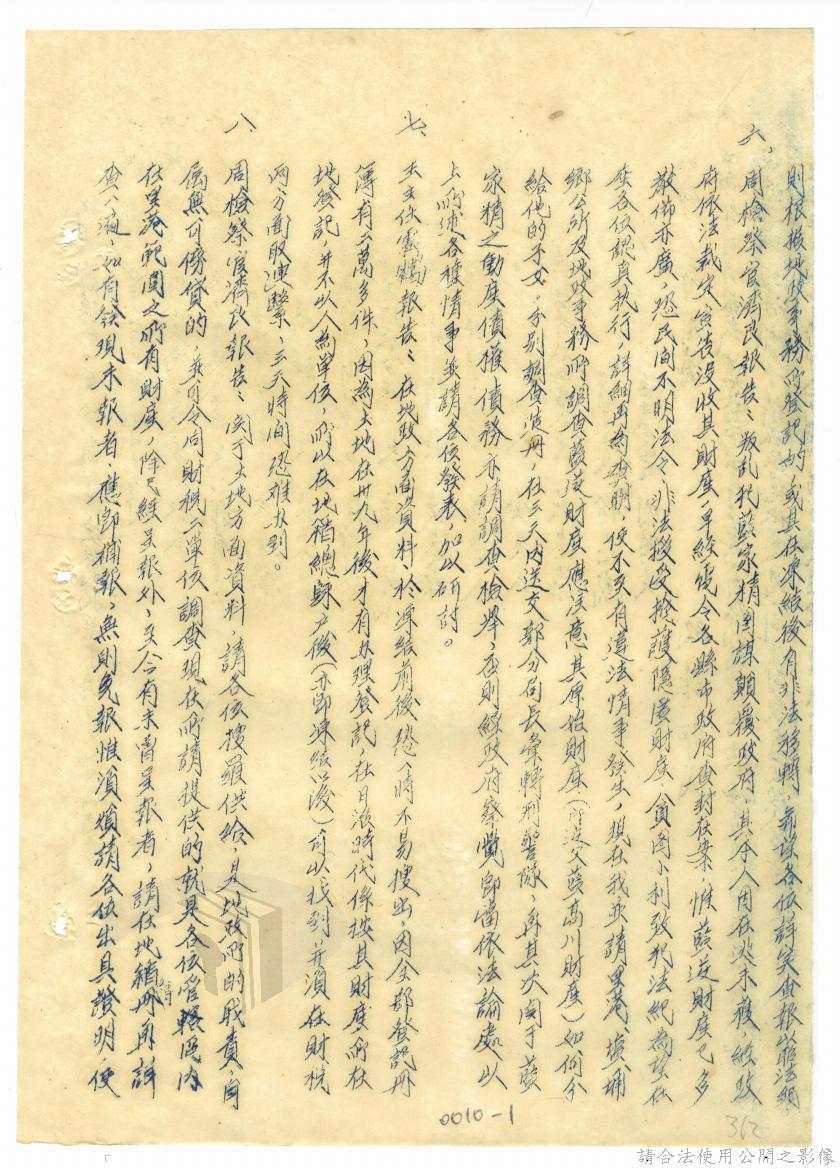 則根據地政事務所登記的，或其在凍結後有非法移轉，希望各位詳實查報以維法紀
六、周檢察官濟民報告：叛乱犯藍家精圖謀顛覆政府，其本人因在逃未獲，經政
府依法裁定宣告沒收其財產，早經電令各縣市政府查封在案，惟藍逆財產已多
散佈亦廣，恐民間不明法令，非法接受掩護隱匿財產，貪圖小利致犯法紀，為望在
座各位認真執行，詳細再為查明，使不致有違法情事發生，現在我並請里港、鹽埔
鄉公所及地政事務所調查藍逆財產應注意其原始財產（即逆父藍高川財產）如何分
給他的子女，分別調查造冊，在三天內送交郭分局長彙轉刑警隊，再其次関于藍
家精之動產債權債務亦請調查檢舉，否則經政府察覺即當依法論處，以
上所述各種情事並請各位發表，加以研討。
七、王主任雲鵬報告：在地政方面資料，於凍結前後恐一時不易搜出，因全部登記冊
簿有二萬多件，因為土地在卅九年後才有办理登記，在日治時代係按其財產所在
地登記，并不以人為單位，所以在地籍總歸戶後（亦即凍結以後）可以找到，并須在財稅
兩方面取連繫，三天時间恐难办到。
八、周檢察官濟民報告：関于土地方面資料，請各位搜羅供給，是地政所的职責，自
屬無可傍貸的，並可令同財稅二單位調查現在所請提供的，就是各位管轄區內
在里港範圍之所有財產，除已經呈報外，至今有未曾呈報者，請在地籍冊再詳
查一遍，如有發現未報者，應即補報，無則免報惟須煩請各位出具證明，使
0010-1
362
請合法使用公開之影像